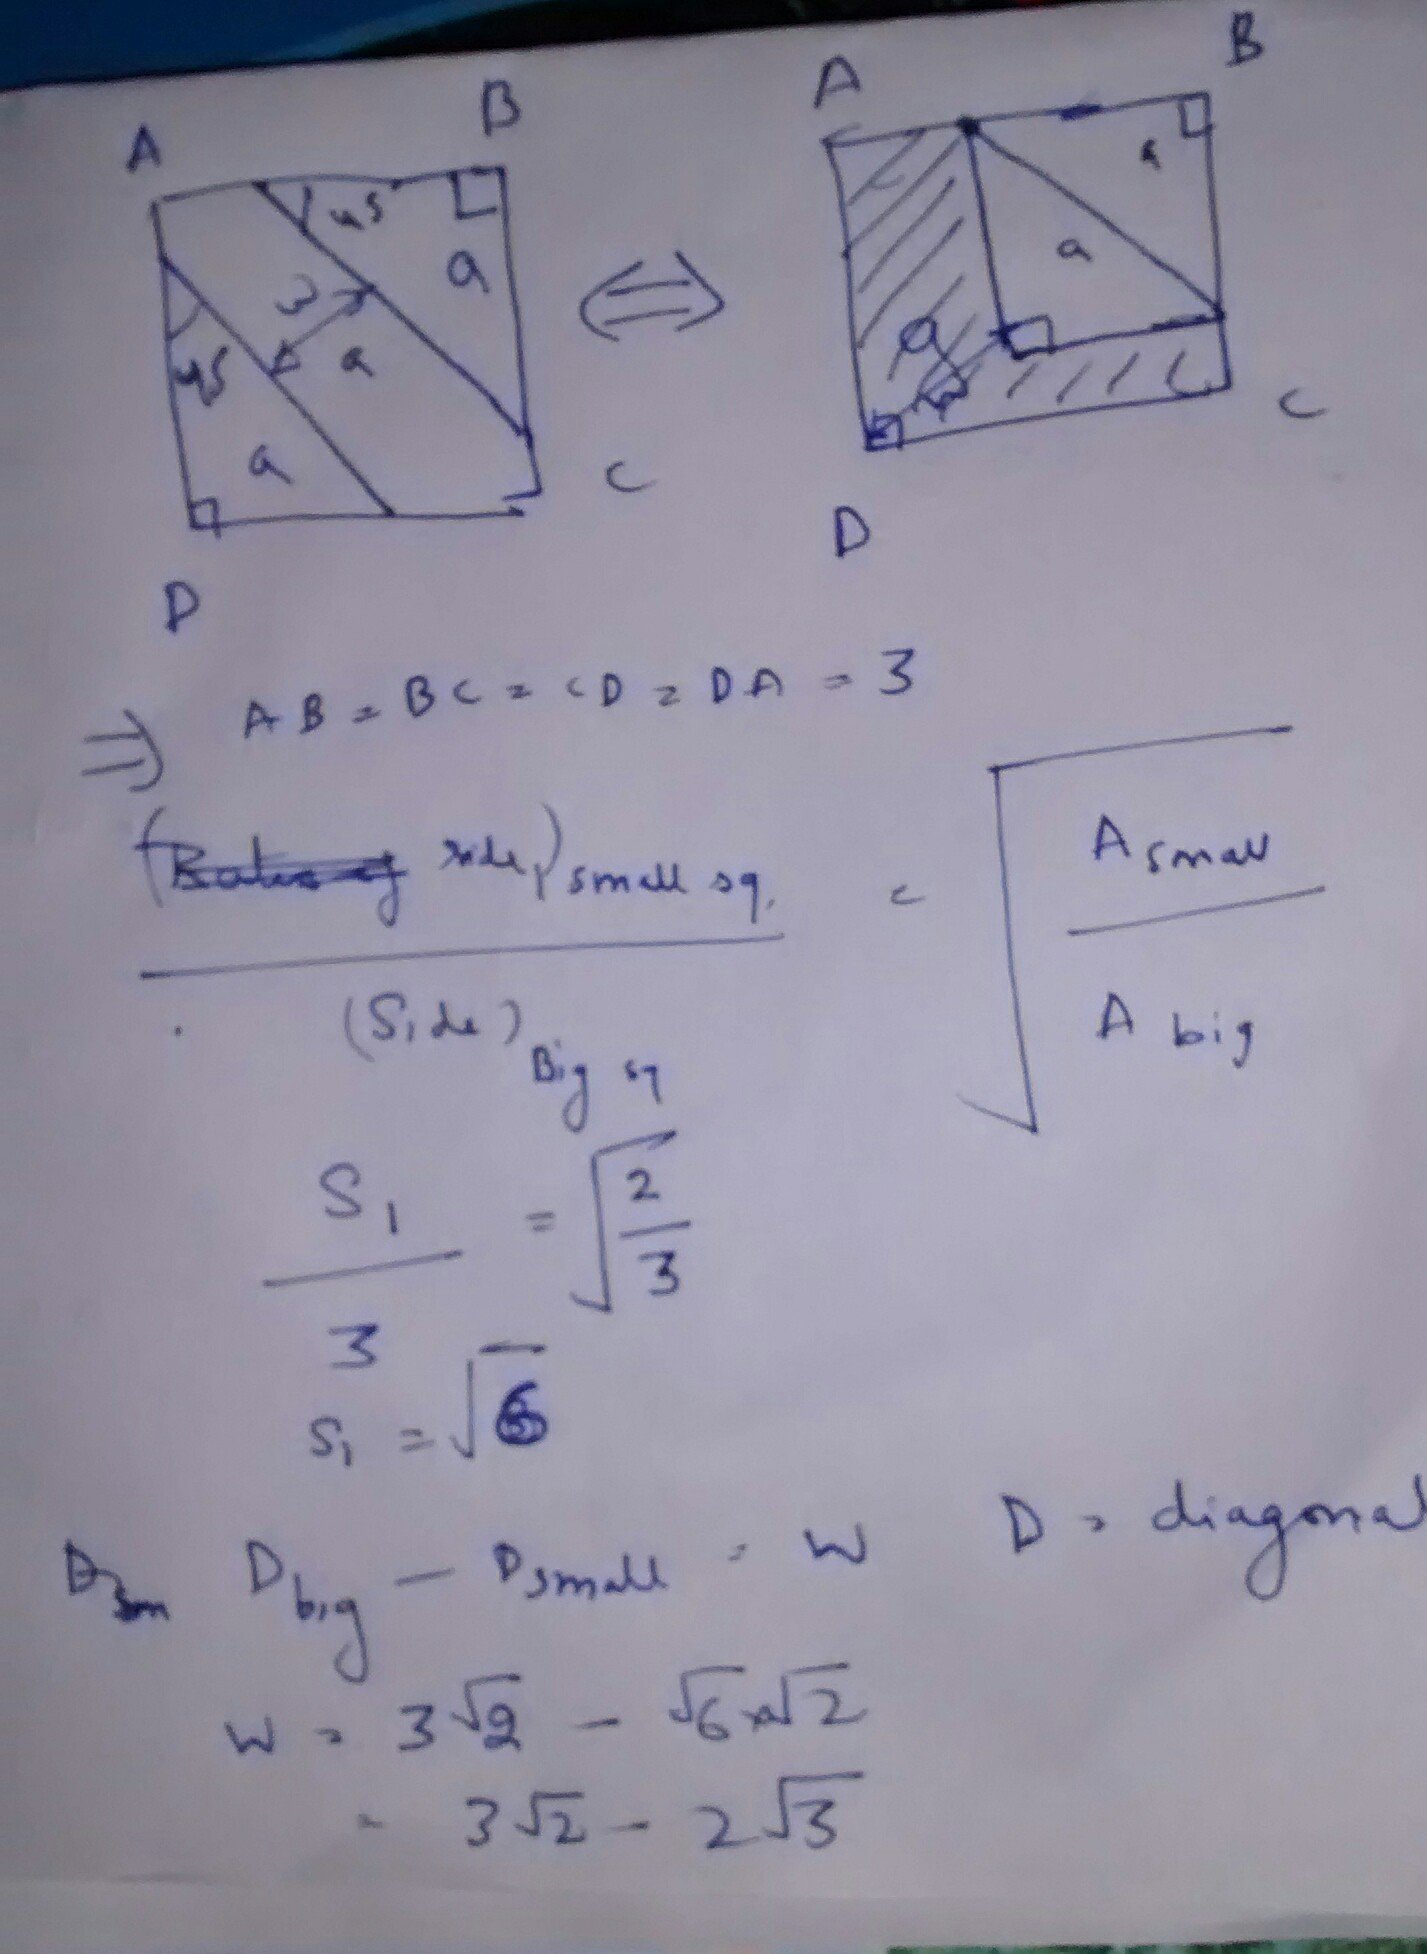 A B
45
a
w
a
45
a
C
D
⇔
A B
a
a
a
w
C
D
⇒ AB = BC = CD = DA = 3
(side)small sq. / (Side)Big sq = √(A small / A big)
S₁ / 3 = √(2/3)
S₁ = √6
D big − D small = W D = diagonal
W = 3√2 − √6 x √2
= 3√2 − 2√3